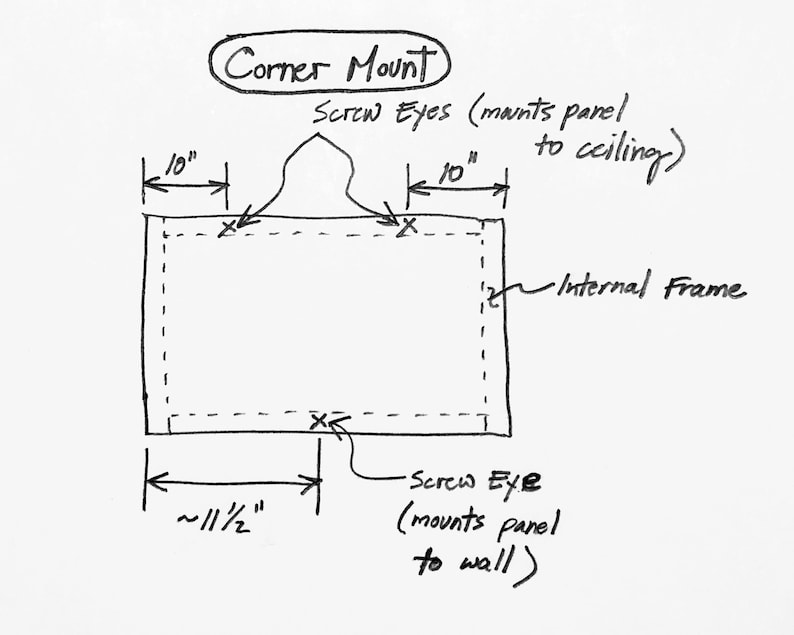 Corner Mount
Screw Eyes (mounts panel
to ceiling)
10"
10"
Internal Frame
~11 1/2"
Screw Eye
(mounts panel
to wall)